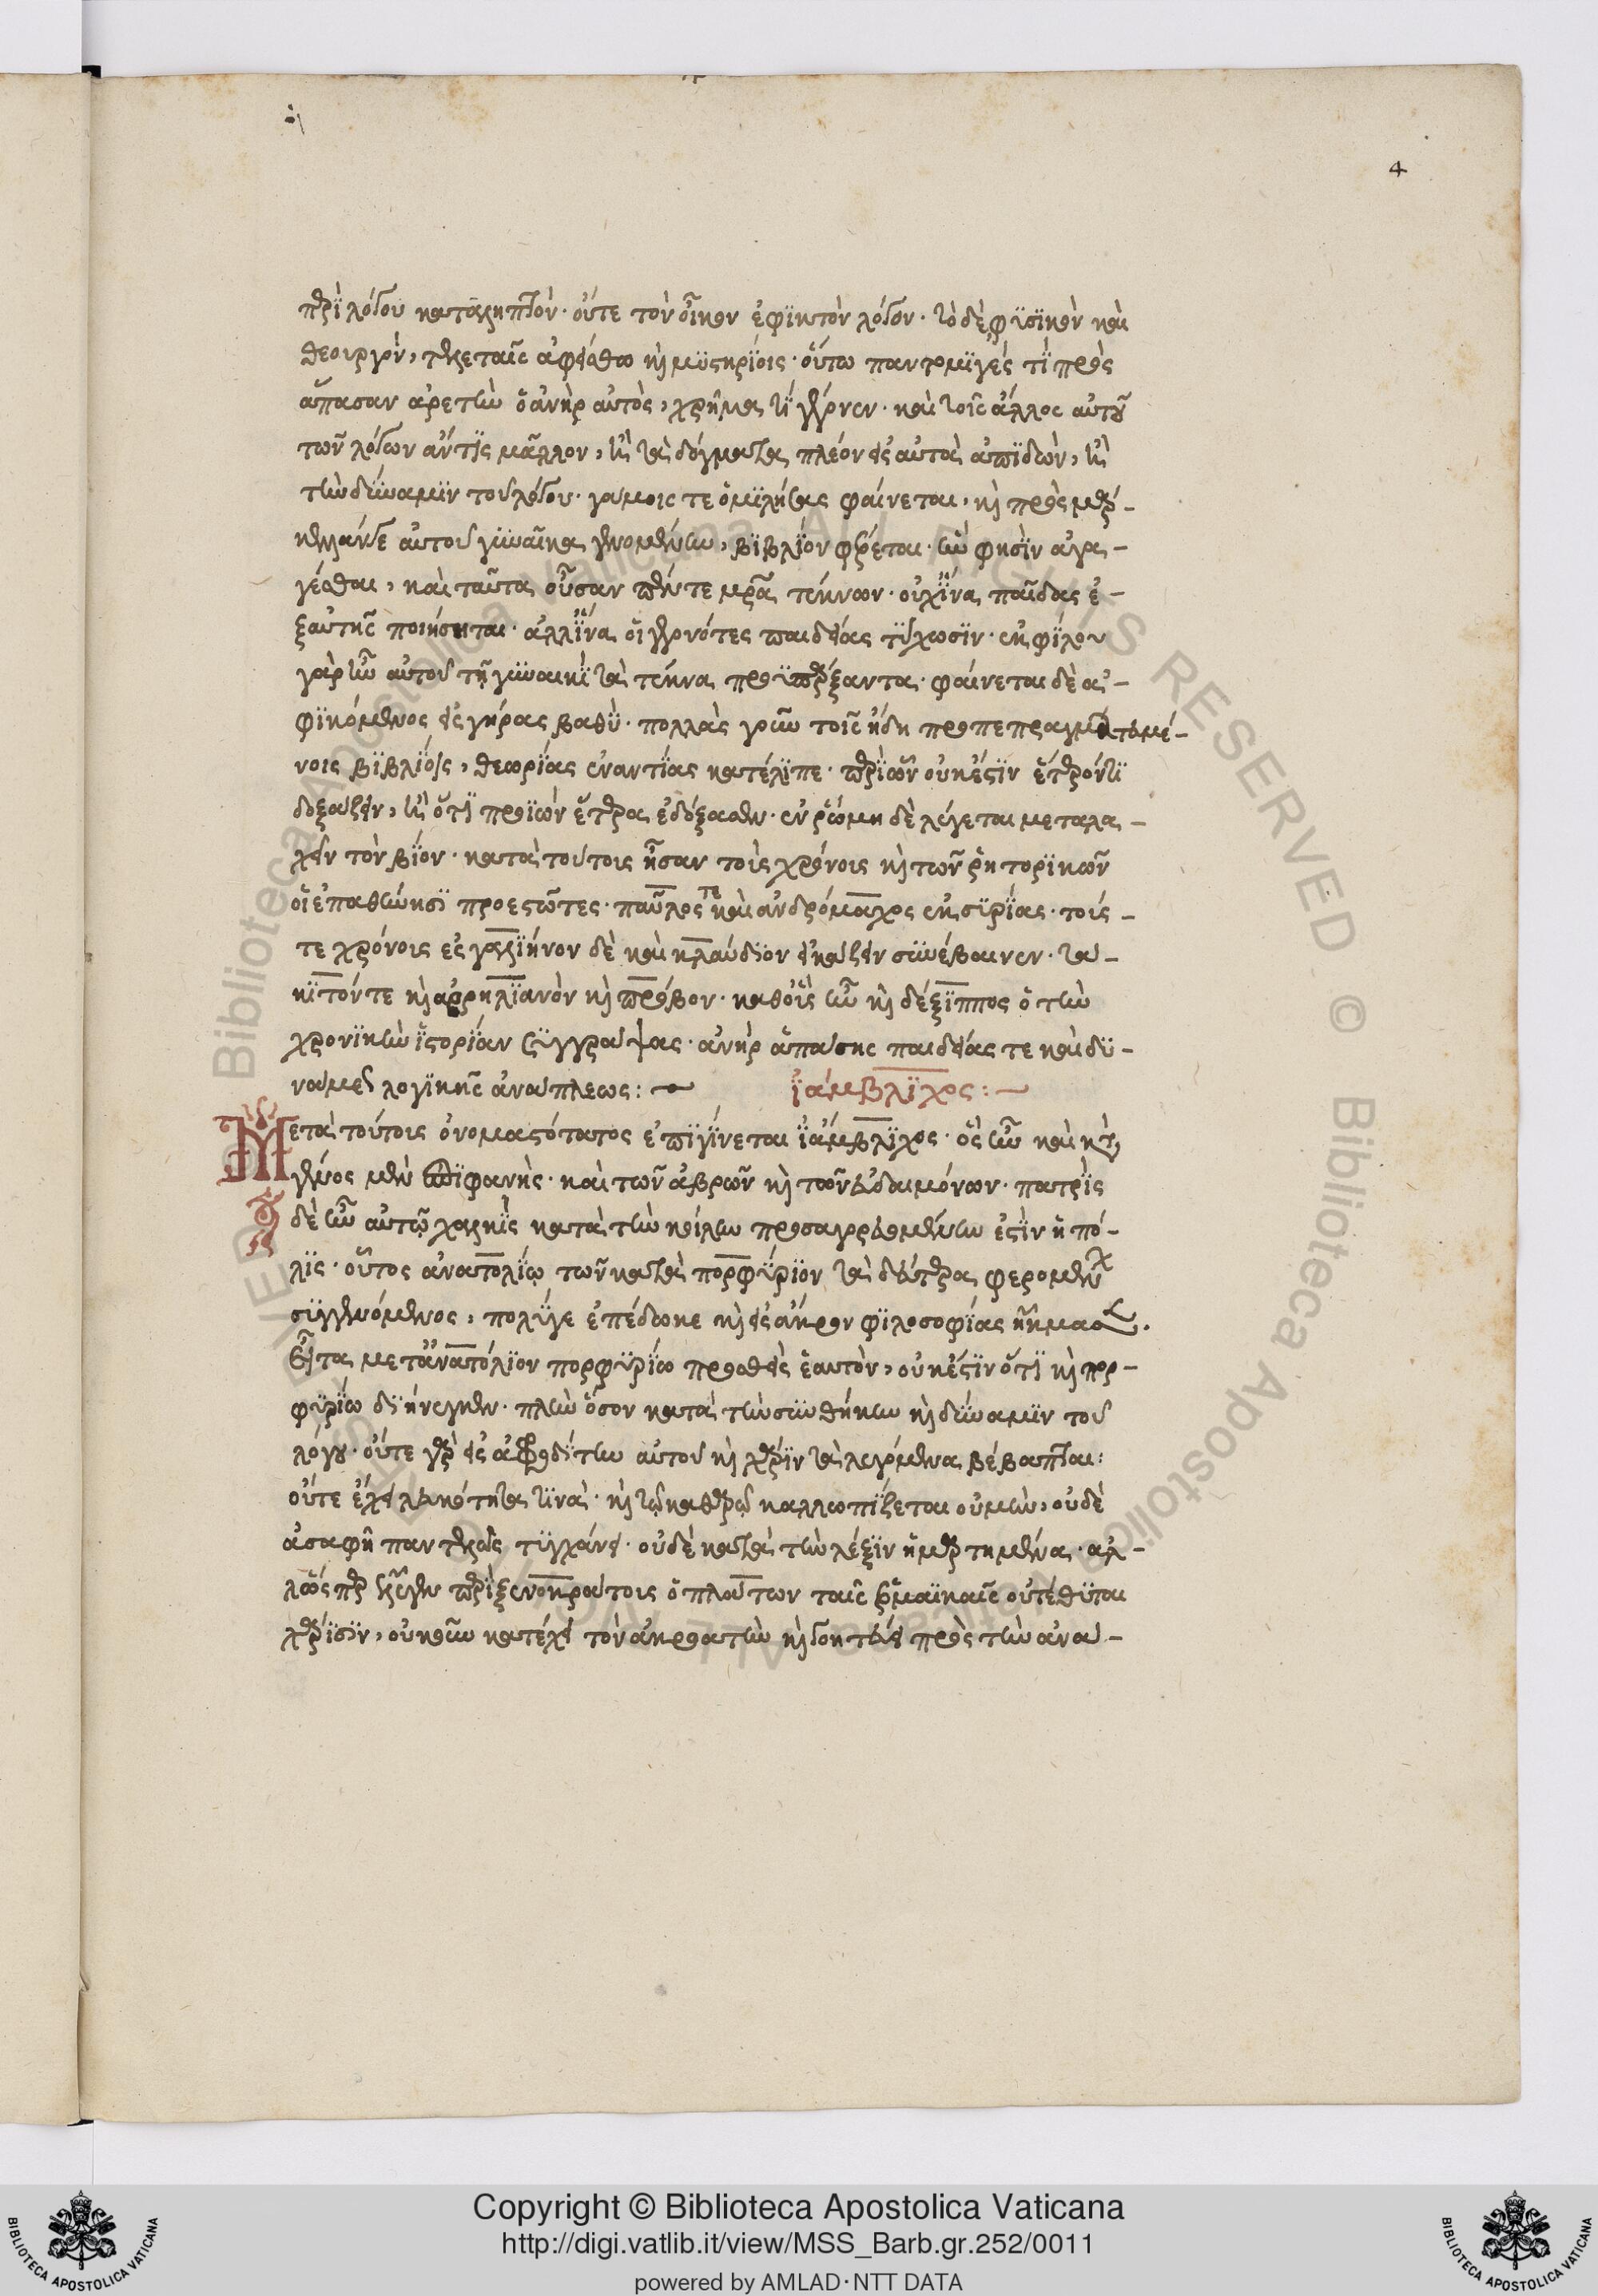 4
περὶ λόγου καταληπτὸν· οὔτε τὸν οἶκον ἐφϊκτὸν λόγον· τὸ δὲ φϋσϊκὸν καὶ
θεουργὸν, τελεταῖς ἀφείσθω καὶ μϋστηρΐοις· οὕτω παντομϊγές τΐ πρὸς
ἅπασαν ἀρετὴν ὁ ἀνὴρ αὐτὸς, χρῆμά τϊ γέγονεν· καὶ τοῖς ἄλλος αὐτοῦ
τῶν λόγων ἄν τϊς μᾶλλον, ἢ τὰ δόγματα πλέον εἰς αὐτὰ ἀπϊδὼν, ἢ
τὴν δύναμϊν τοῦ λόγου· γάμοις τε ὁμϊλήσας φαίνεται, καὶ πρὸς μαρ-
κέλλαν δὲ αὐτοῦ γϋναῖκα γενομένην, βϊβλΐον φέρεται· ἣν φησὶν ἀγα-
γέσθαι, καὶ ταῦτα οὖσαν πέντε μητέρα τέκνων· οὐχΐνα παῖδας ἐ-
ξαὐτῆς ποιήσηται· ἀλλΐνα οἱ γεγονότες παιδείας τΰχωσϊν· ἐκ φΐλου
γὰρ ἦν αὐτοῦ τῇ γϋναικΐ τὰ τέκνα προϋπάρξαντα· φαίνεται δὲ ἀ-
φϊκόμενος εἰς γήρας βαθϋ· πολλὰς γοῦν τοῖς ἤδη προπεπραγματευμέ-
νοις βϊβλΐοις, θεωρΐας ἐναντΐας κατέλϊπε· περὶ ὧν οὐκ ἔστϊν ἕτερόν τϊ
δοξάζειν, ἢ ὅτϊ προϊὼν ἕτερα ἐδόξασεν· ἐν ῥώμη δὲ λέγεται μεταλα-
χεῖν τὸν βΐον· κατὰ τούτοις ἦσαν τοὺς χρόνοις καὶ τῶν ῥητορϊκῶν
οἱ ἐπαθήνησϊ προεστῶτες· παῦλος τε καὶ ἀνδρόμαχος ἐκ σϋρΐας· τοὺς-
τε χρόνοις ἐς γαλλϊήνον δὲ καὶ κλαύδϊον εἰκάζειν σϋνέβαινεν· τά-
κϊτόν τε καὶ αὐρηλϊανὸν καὶ πρόβον· καθοὓς ἦν καὶ δέξϊππος ὁ τὴν
χρονϊκὴν ἱστορΐαν ξϋγγράψας· ἀνὴρ ἁπάσης παιδείας τε καὶ δϋ-
νάμεως λογϊκῆς ἀνάπλεως:— ἰάμβλϊχος:—
Μετὰ τούτοις ὀνομαστότατος ἐπϊγΐνεται ϊάμβλϊχος· ὃς ἦν καὶ κατὰ
γένος μὲν ἐπϊφανὴς· καὶ τῶν ἁβρῶν καὶ τῶν εὐδαιμόνων· πατρὶς
δὲ ἦν αὐτῷ χαλκΐς κατὰ τὴν κοίλην προσαγορευομένην ἐστὶν ἡ πό-
λϊς· οὗτος ἀνατολΐῳ τῶν κατὰ πορφΰρϊον τὰ δεύτερα φερομένῳ
σϋγγενόμενος, πολΰγε ἐπέδωκε καὶ εἰς ἄκρον φϊλοσοφΐας ἤκμασεν.
Εἶτα μετἀνατόλϊον πορφϋρΐω προσθεὶς ἑαυτὸν, οὐκ ἔστϊν ὅτϊ καὶ πορ-
φϋρΐω δϊήνεγκεν· πλὴν ὅσον κατὰ τὴν σϋνθήκην καὶ δύναμϊν τοῦ
λόγου· οὔτε γὰρ εἰς ἀφροδΐτην αὐτοῦ καὶ χάρϊν τὰ λεγόμενα βέβαπται:
οὔτε ἔχει λευκότητα τϊνὰ· καὶ τῷ καθαρῷ καλλωπΐζεται οὐ μὴν, οὐδὲ
ἀσαφῆ παντελῶς τϋγχάνει· οὐδὲ κατὰ τὴν λέξϊν ἡμαρτημένα· ἀλ-
λὥσπερ ἔλεγεν περὶ ξενοκράτοις ὁ πλάτων ταῖς ἑρμαϊκαῖς οὐ τέθϋται
χάρϊσϊν, οὐκοῦν κατέχει τὸν ἀκροατὴν καὶ γοητεύει πρὸς τὴν ἀνά-
Copyright © Biblioteca Apostolica Vaticana
http://digi.vatlib.it/view/MSS_Barb.gr.252/0011
powered by AMLAD·NTT DATA